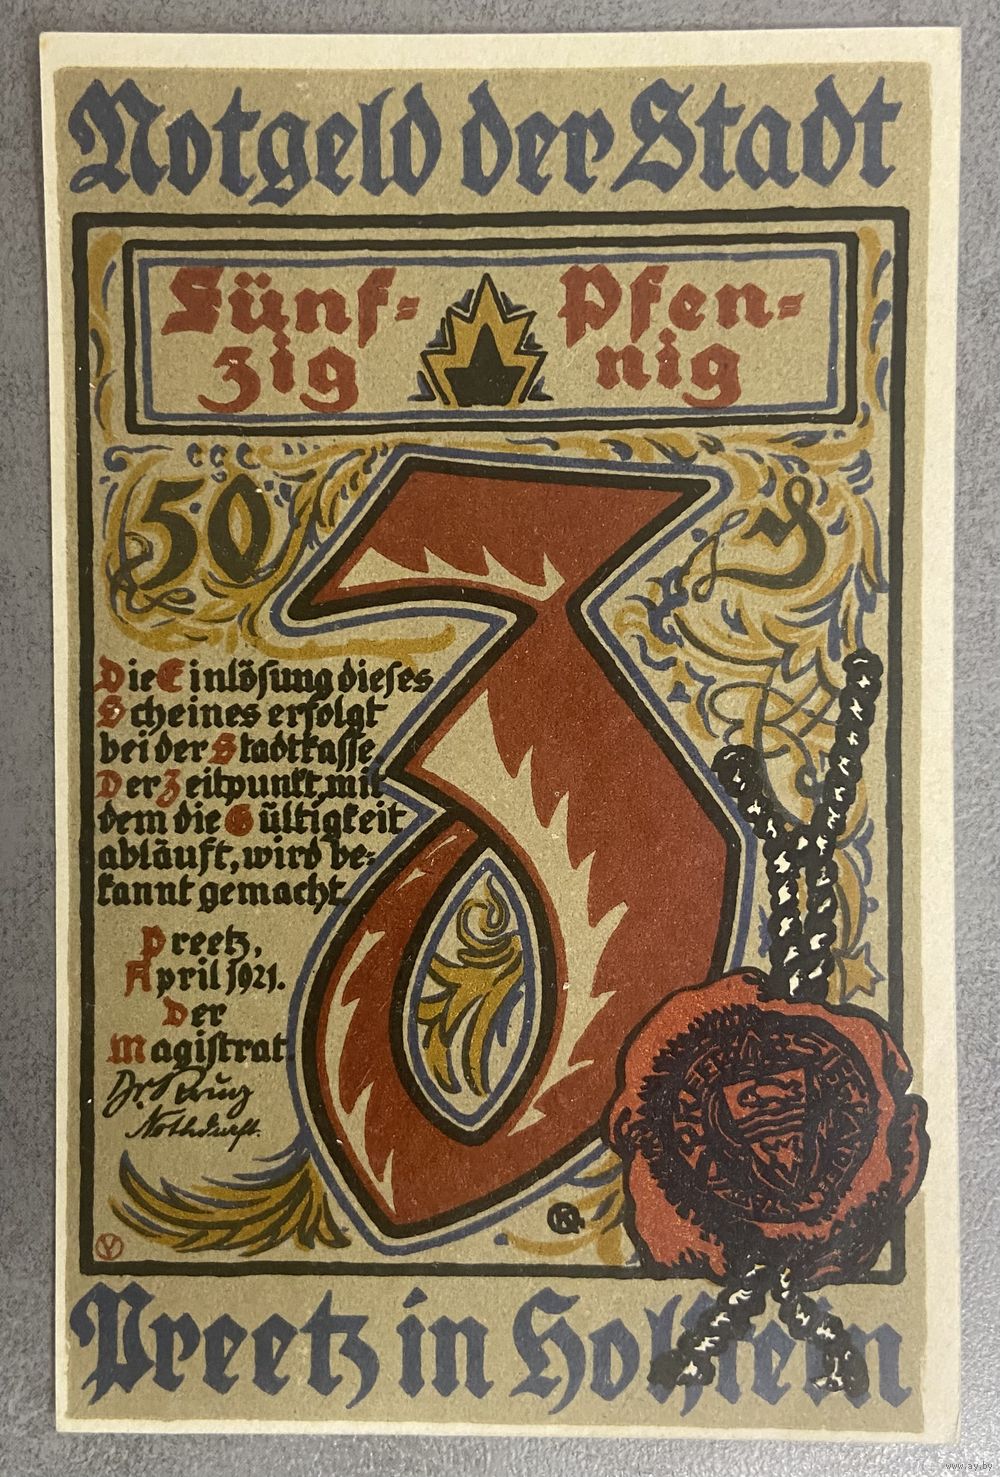 Notgeld der Stadt
Fünf-
zig
Pfen-
nig
50
₰
Die Einlösung dieses
Scheines erfolgt
bei der Stadtkasse
Der Zeitpunkt, mit
dem die Gültigkeit
abläuft, wird be-
kannt gemacht.
Preetz,
April 1921.
Der
Magistrat
Nothdurft.
Preetz in Holstein
www.ay.by